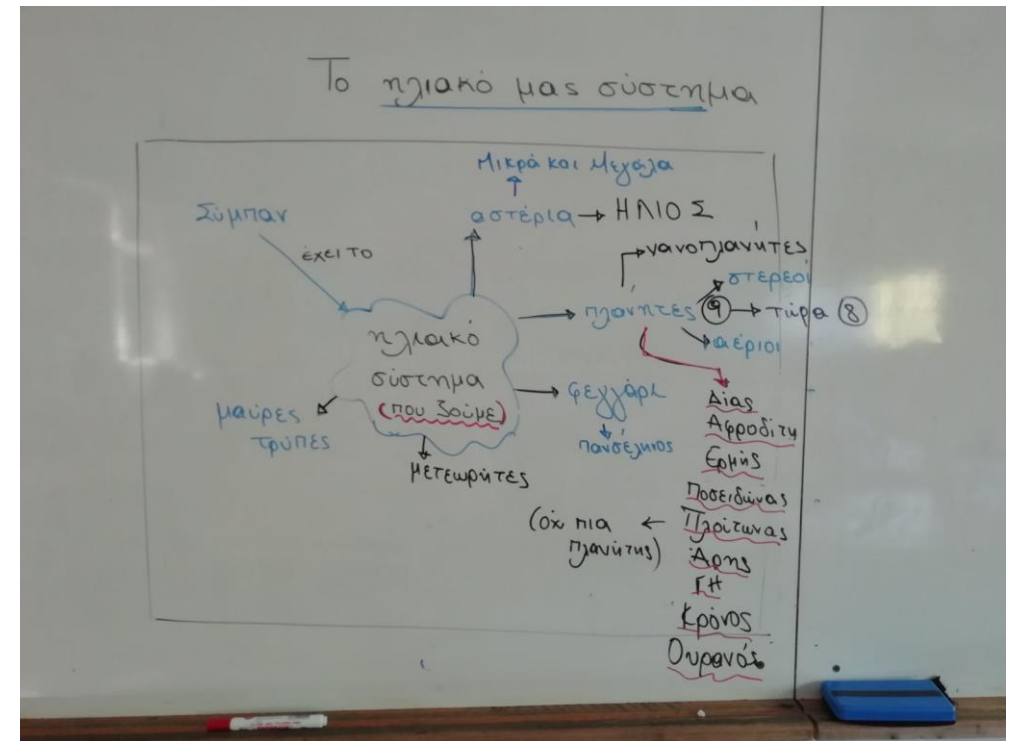 Το ηλιακό μας σύστημα
Μικρά και Μεγάλα
Σύμπαν
αστέρια → ΗΛΙΟΣ
έχει το
νανοπλανήτες
στερεοί
πλανήτες 9 → τώρα 8
αέριοι
ηλιακό
σύστημα
(που ζούμε)
φεγγάρι
πανσέληνος
μαύρες
τρύπες
μετεωρήτες
Δίας
Αφροδίτη
Ερμής
Ποσειδώνας
(όχι πια ← Πλούτωνας
πλανήτης)
Άρης
ΓΗ
Κρόνος
Ουρανός